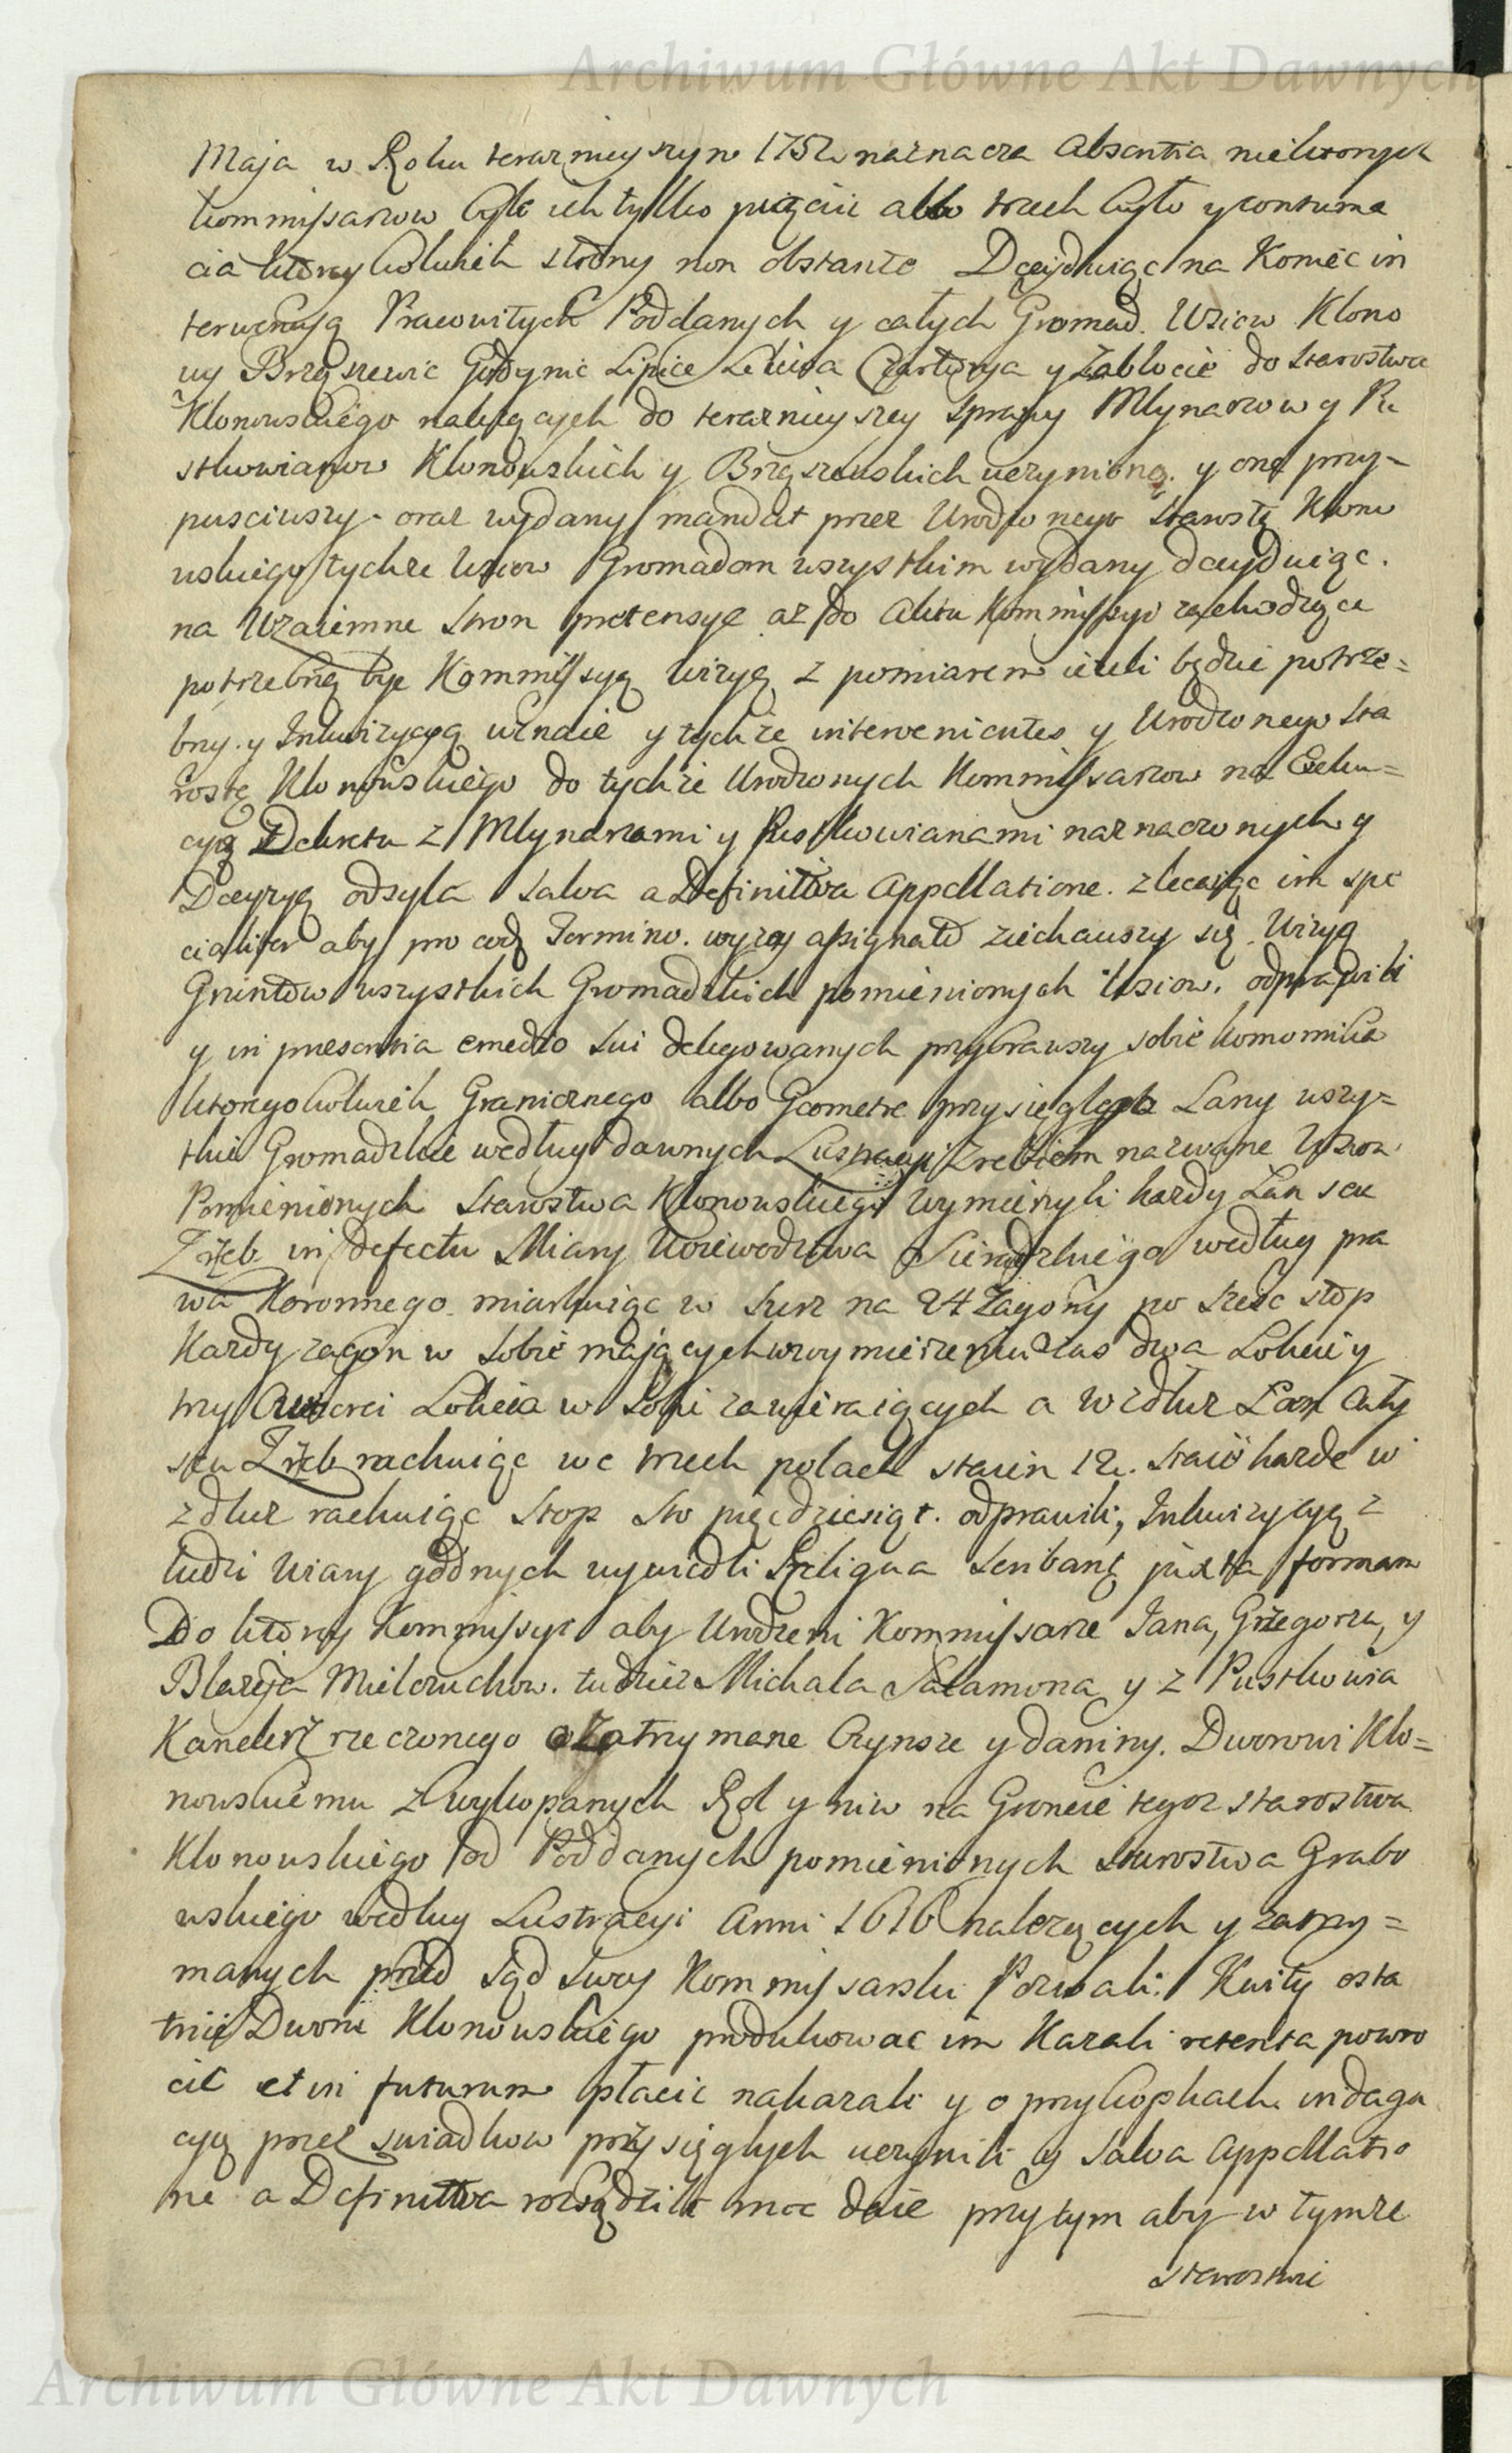 Archiwum Główne Akt Dawnych
Maja w Roku teraznieyszym 1752 naznacza absentia niektorych
kommissarzow byle ich tylko pięciu albo trzech było y contuma
cia ktorykolwiek strony non obstante Decyduiąc na Koniec in
terwencyą Pracowitych Poddanych y całych Gromad. Wsiow Klono
wy Brzączewic Godynic Lipice Leliwa Czartorya y Zablocie do Starostwa
Klonowskiego należących do teraznieyszey sprawy Mlynarzow y Pu
stkowianow Klonowskich y Brząszewskich uczynioną. y onę przy-
pusciwszy. oraz wydany mandat przez Urodzonego Starostę Klono
wskiego tychże Wsiow Gromadom wszystkim wydany decyduiąc.
na Wzaiemne stron pretensye aż do aktu Kommissyi zachodzące
potrzebną bye Kommissyą wizyą z pomiarem ieżeli będzie potrze=
bny. y Inkwizycyą uznaie y tychże intervenientes y Urodzonego Sta
rostę Klonowskiego do tychże Urodzonych Kommissarzow na Exeku=
cyą Dekretu z Mlynarzami y Pustkowianami naznaczonych y
Decyzyą odsyła salva a Definitiva Appellatione. zlecaiąc im spe
cialiter aby pro eoq Termino. wyzey assignato ziechawszy się. Wizyą
Gruntow wszystkich Gromadzkich pomienionych Wsiow. odprawili
y in praesentia e medio sui delegowanych przybrawszy sobie komornika
ktoregokolwiek Granicznego albo Geometrę przysięgłego Lany wszy=
tkie Gromadzkie według dawnych Lustracyi Zrebiem nazwane Wsiow
Pomienionych Starostwa Klonowskiego wymierzyli każdy Łan seu
Zrzeb in defectu Miary Woiewodztwa Sieradzkiego według pra
wa Koronnego. miarkuiąc w szerz na 24 Zagony po szesc stop
Kazdy zagon w sobie maiących w wymierzeniu zas dwa Lokcie y
trzy cwierci Lokcia w sobie zawieraiących a wzdłuz Łan cały
seu Zrzeb rachuiąc we trzech polach staien 12. staie kazde w
zdluz rachuiąc stop sto pięcdziesiąt. odprawili, Inkwizycyę z
ludzi wiary godnych wywiedli Reliqua scribent juxta formam
Do ktorey Kommissyi aby Urodzeni Kommissarze Jana, Grzegorza, y
Blazeja Mielcuchow. tudziez Michala Salamona y z Pustkowia
Kanclerz rzeczonego o zatrzymane Czynsze y daniny. Dworowi Klo=
nowskiemu z wykopanych Rol y niw na Groncie tegoz starostwa
Klonowskiego od Poddanych pomienionych Starostwa Grabo
wskiego według Lustracyi Anni 1616 nalezących y zatrzy=
manych przed Sąd swoy Kommissarski Pozwali: Kwity osta
tnie Dworu Klonowskiego produkowac im Kazali retenta powro
cic et in futurum płacic nakazali y o przykopkach indaga
cyę przez swiadkow przysięgłych uczynili y salva Appellatio
ne a Definitiva rozsądzili moc daie przytym aby w tymze
starostwie
Archiwum Główne Akt Dawnych